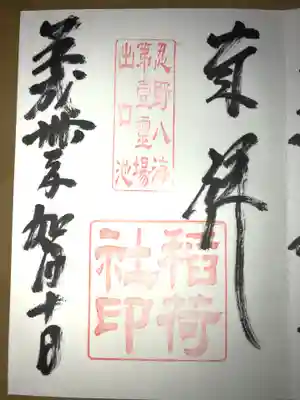 奉拝
忍野八海
第壹靈場
出口池
稻荷
社印
平成卅年 月十日